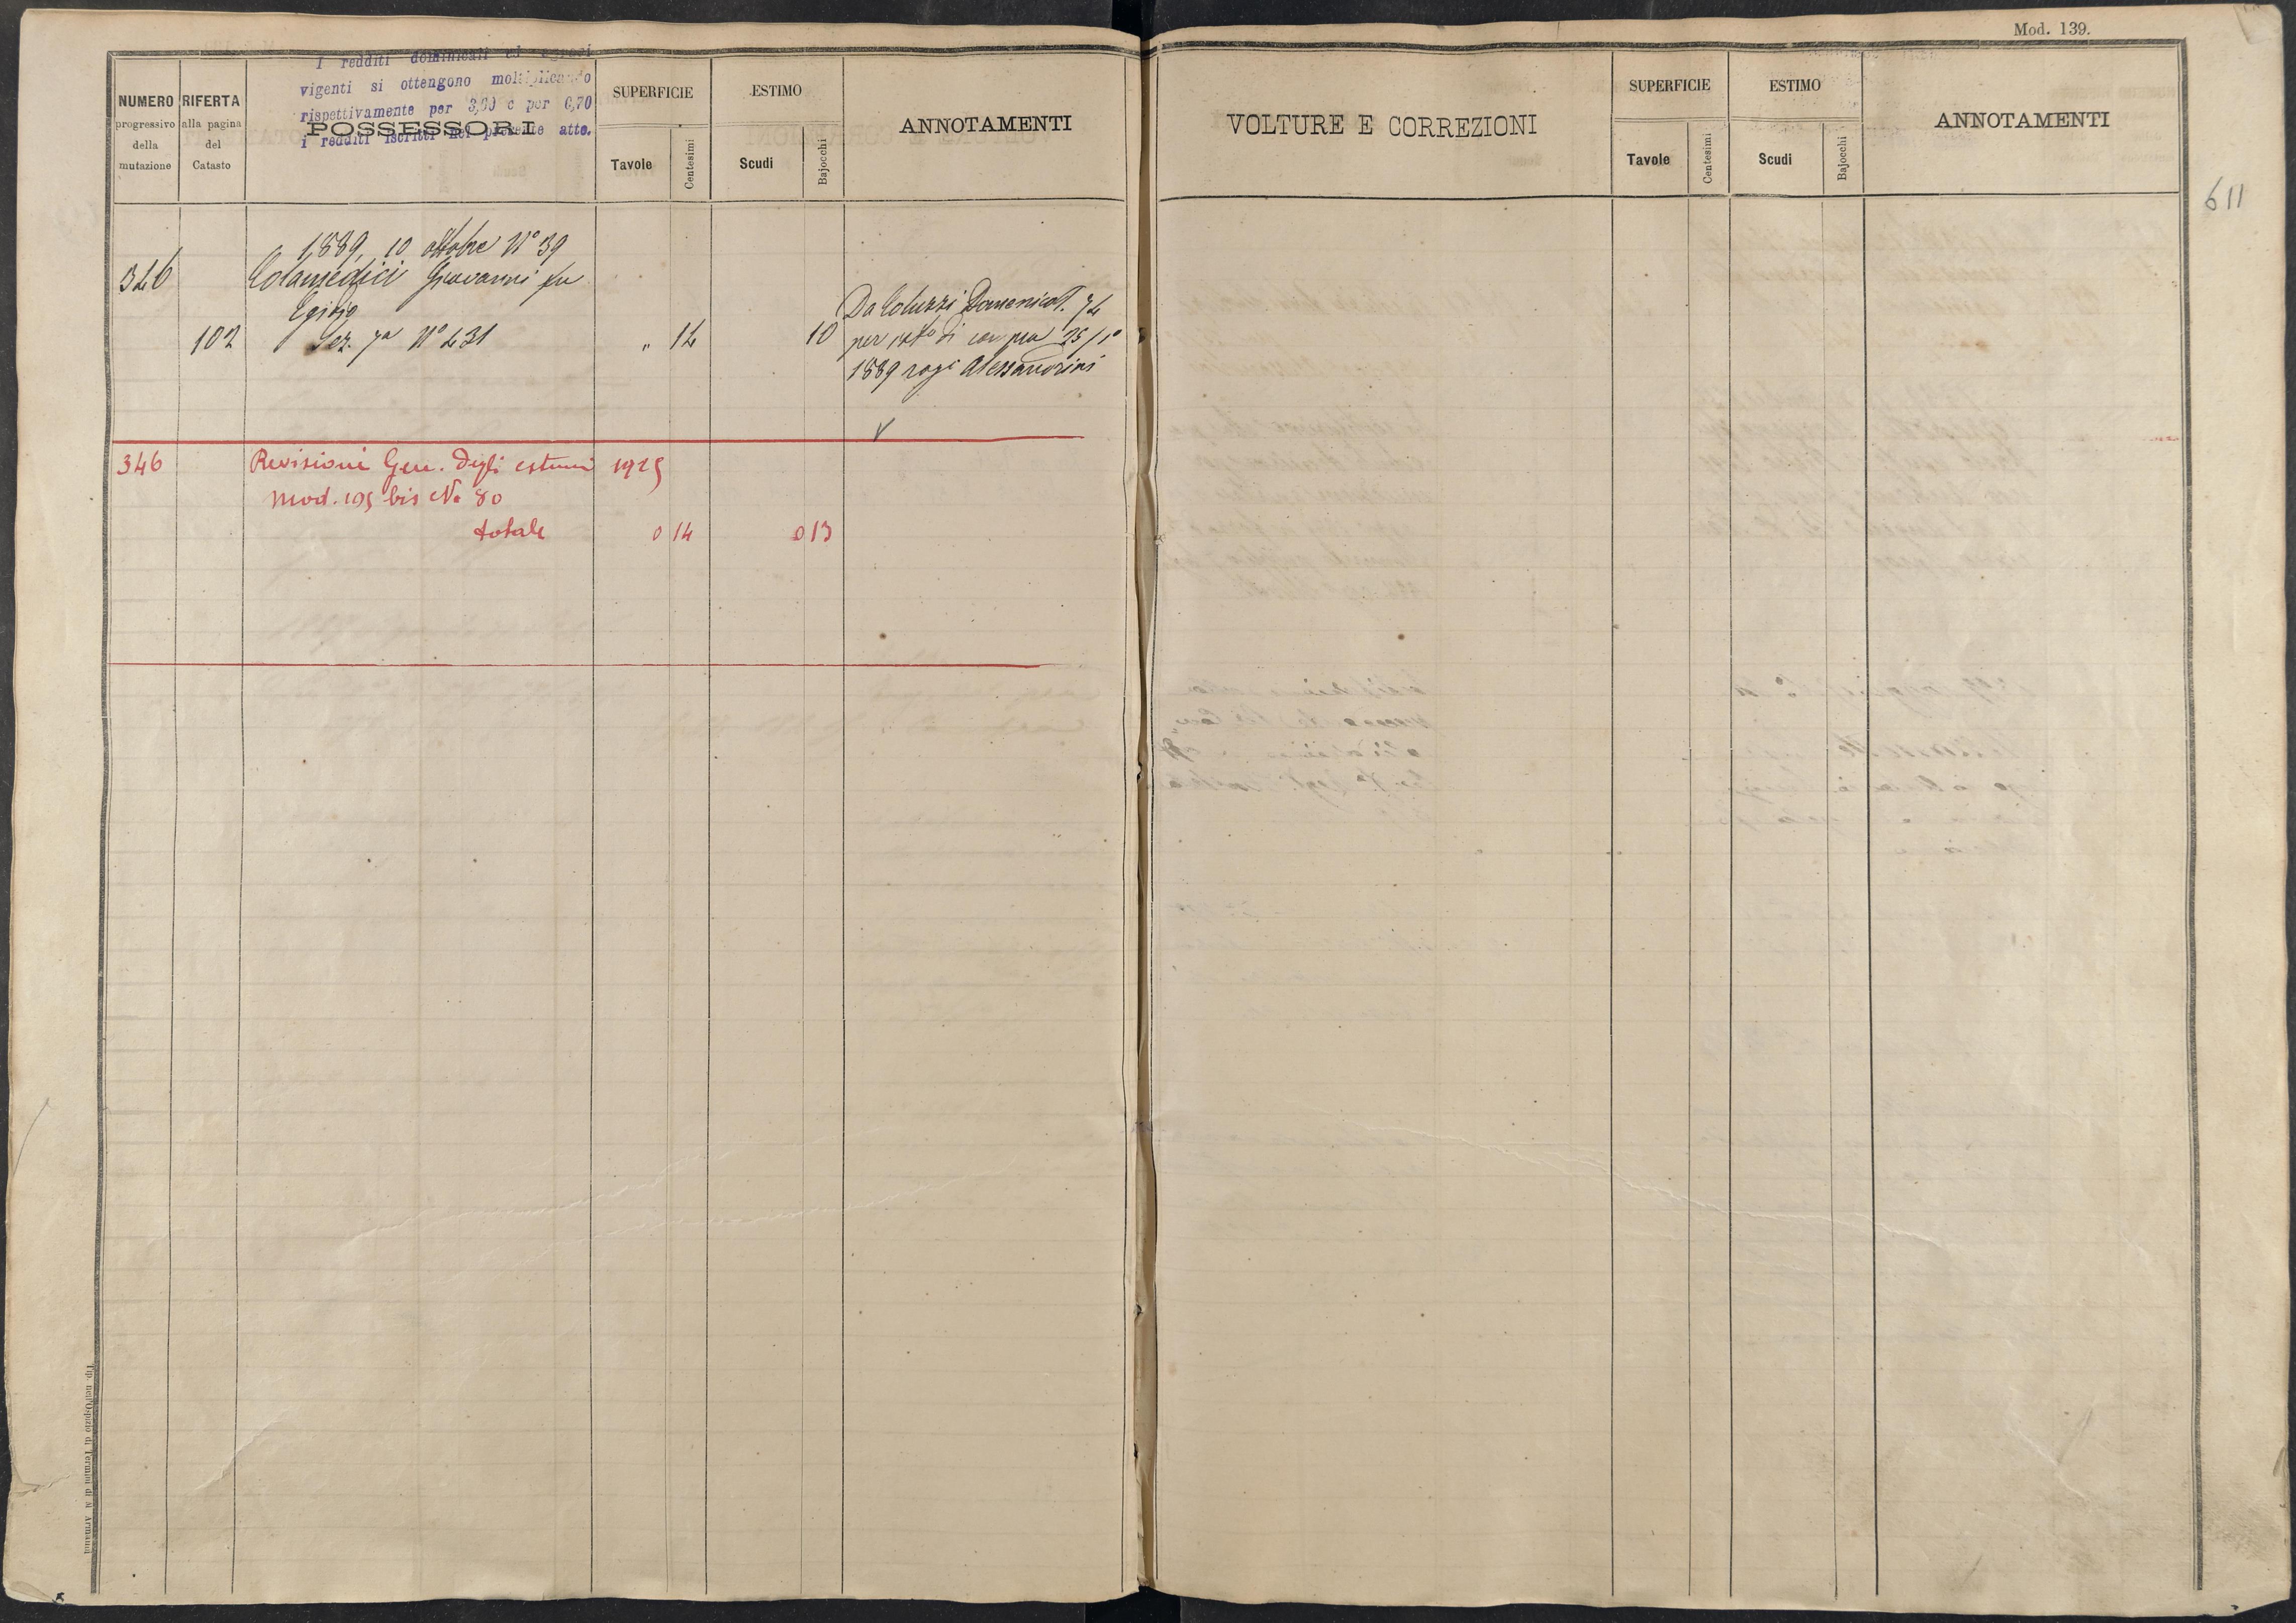 Mod. 139.
I redditi dominicali ed agrari
vigenti si ottengono moltiplicando
rispettivamente per 3,60 e per 6,70
i redditi iscritti nel presente atto.
NUMERO
progressivo
della
mutazione
RIFERTA
alla pagina
del
Catasto
POSSESSORI
SUPERFICIE
Tavole
Centesimi
ESTIMO
Scudi
Bajocchi
ANNOTAMENTI
VOLTURE E CORREZIONI
SUPERFICIE
Tavole
Centesimi
ESTIMO
Scudi
Bajocchi
ANNOTAMENTI
611
1889, 10 ottobre N° 39
346 Colamedici Giovanni fu
Egidio
102 Sez. 7a N° 431 " 14 10
Da Coluzzi Domenico T. 74
per di compra 25/1°
1889 rogi Alessandrini
346 Revisioni Gen. degli estimi 1925
Mod. 195 bis No 80
totale 0 14 0 13
Tip. nell'Ospizio di Termini di A. Armanni